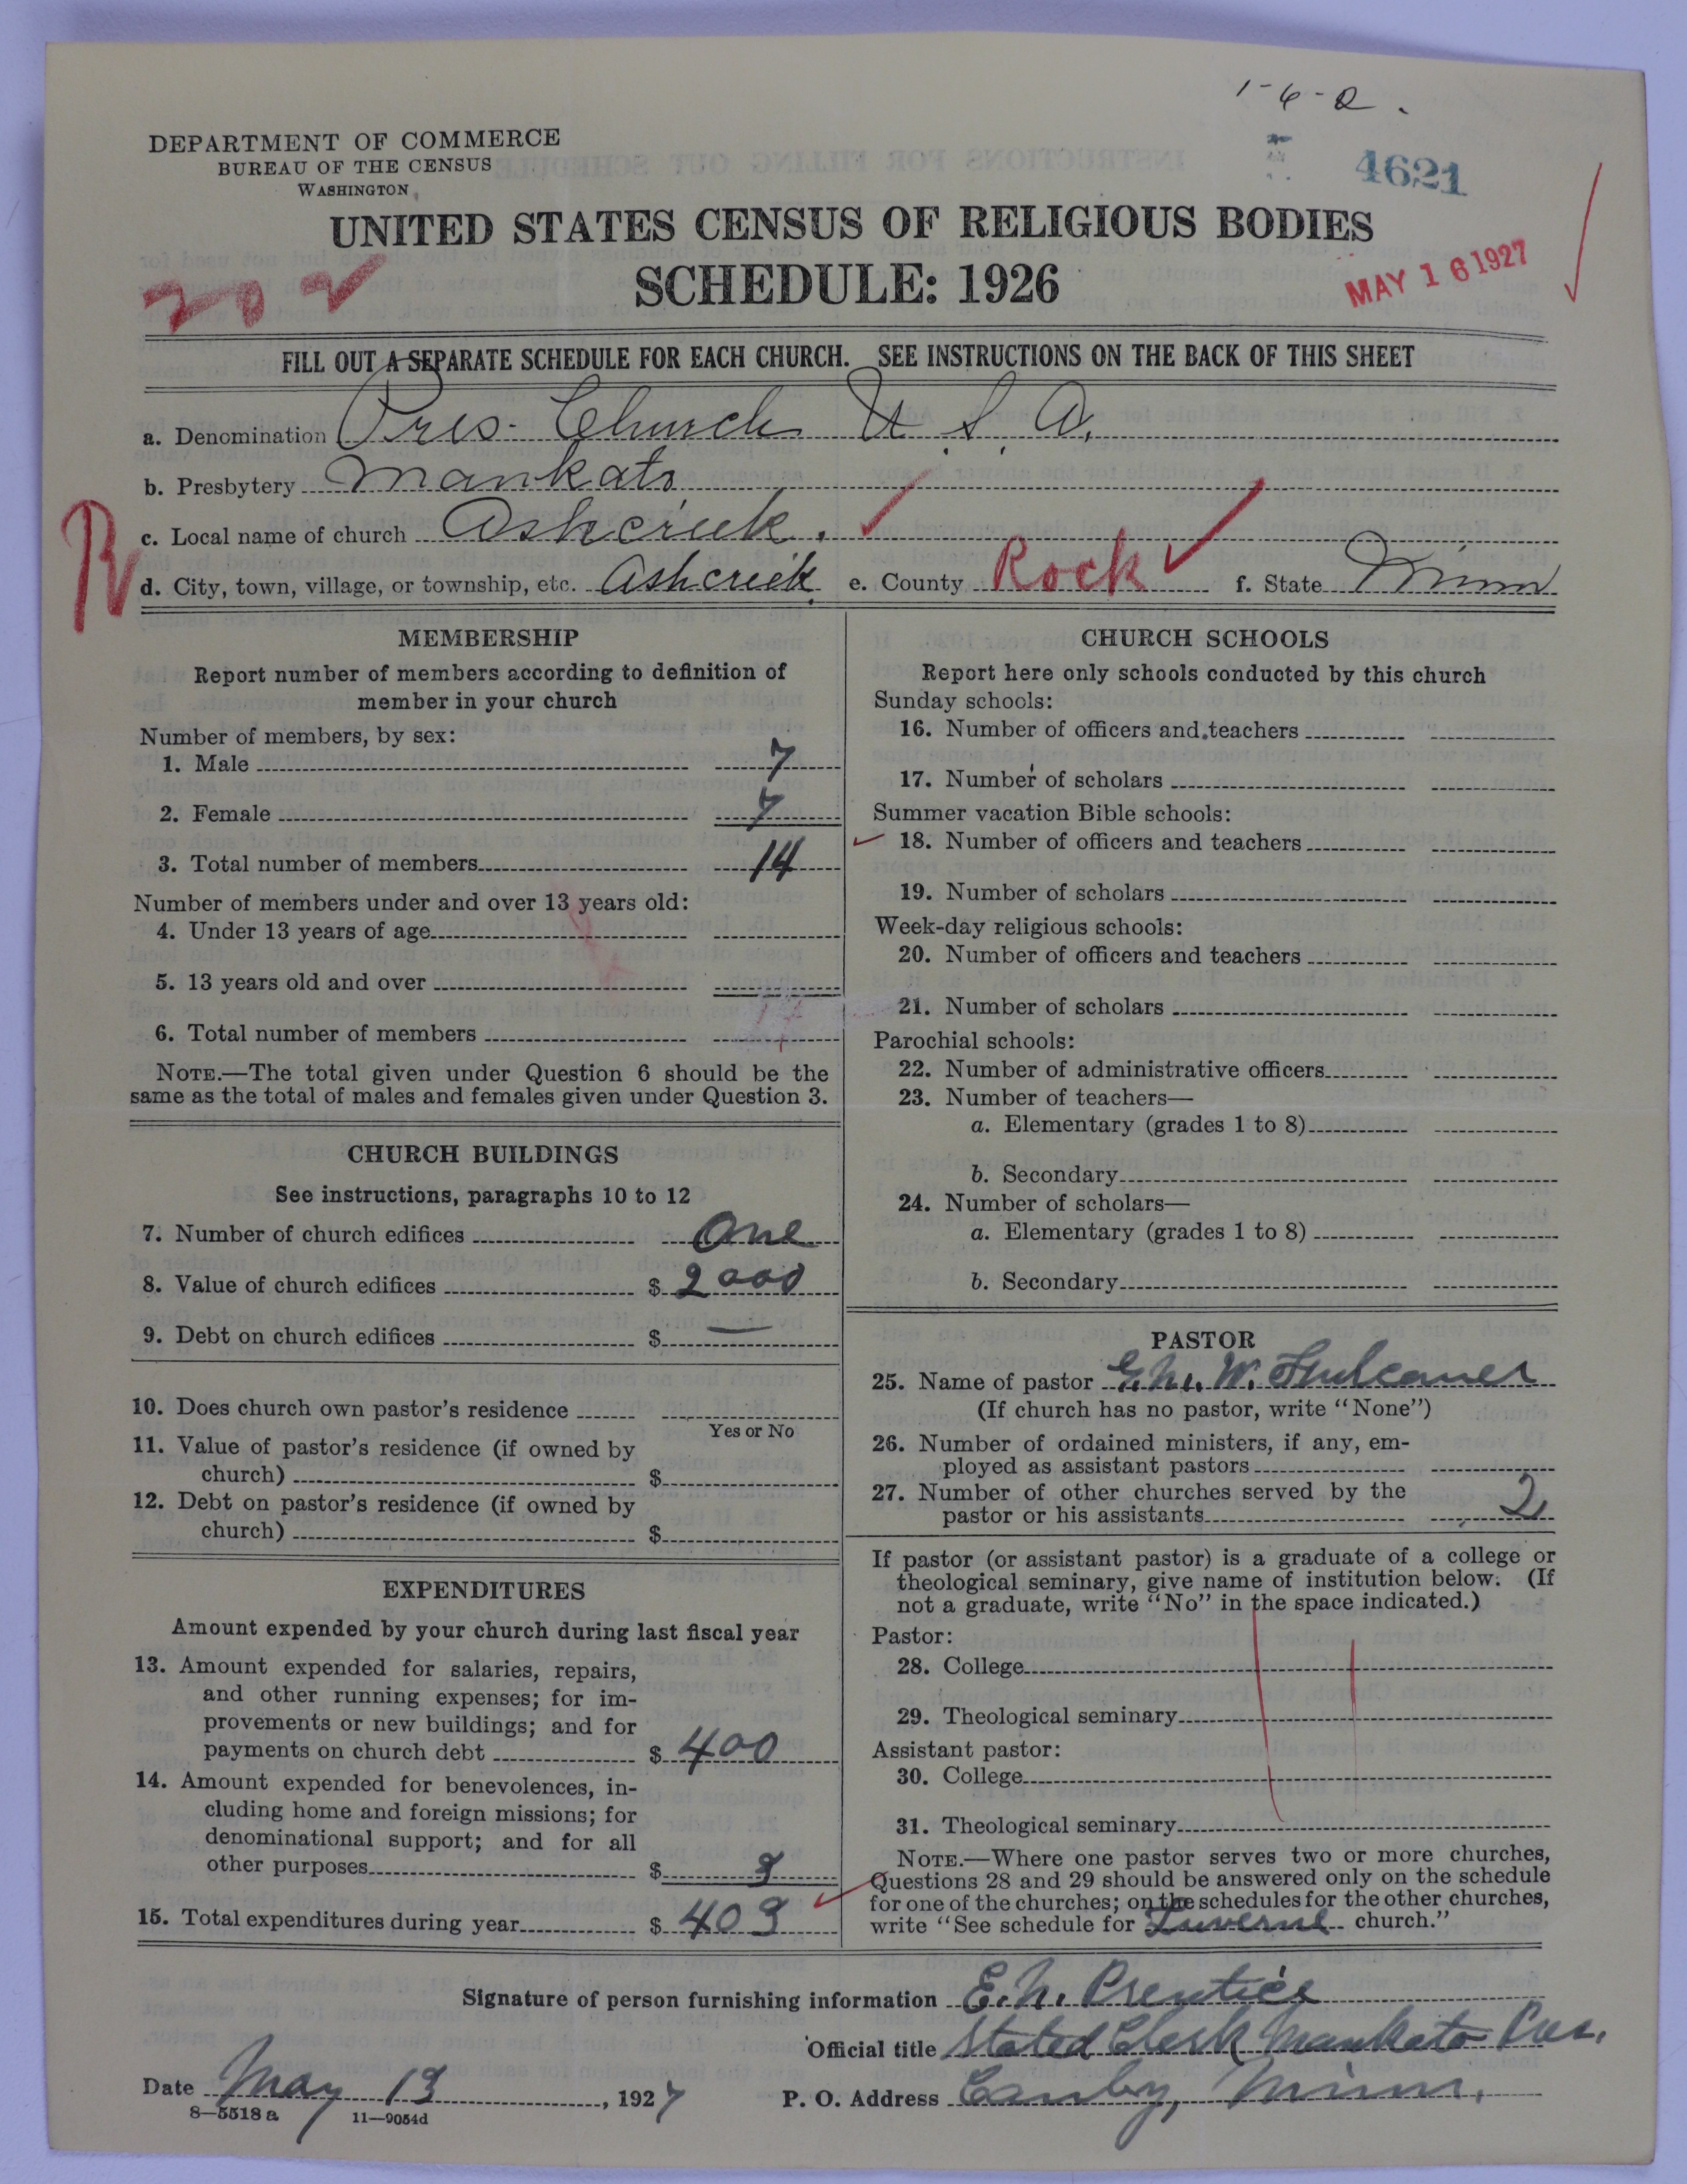 1-6-2.
4621
DEPARTMENT OF COMMERCE
BUREAU OF THE CENSUS
WASHINGTON
UNITED STATES CENSUS OF RELIGIOUS BODIES
SCHEDULE: 1926
202
MAY 16 1927
FILL OUT A SEPARATE SCHEDULE FOR EACH CHURCH. SEE INSTRUCTIONS ON THE BACK OF THIS SHEET
a. Denomination Pres. Church U. S. A.
b. Presbytery Mankato
c. Local name of church Ashcreek.
R
d. City, town, village, or township, etc. Ashcreek e. County Rock f. State Minn
MEMBERSHIP
Report number of members according to definition of
member in your church
Number of members, by sex:
1. Male 7
2. Female 7
3. Total number of members 14
Number of members under and over 13 years old:
4. Under 13 years of age
5. 13 years old and over
6. Total number of members
NOTE.—The total given under Question 6 should be the
same as the total of males and females given under Question 3.
CHURCH BUILDINGS
See instructions, paragraphs 10 to 12
7. Number of church edifices One
8. Value of church edifices $ 2000
9. Debt on church edifices $ —
10. Does church own pastor's residence
Yes or No
11. Value of pastor's residence (if owned by
church) $
12. Debt on pastor's residence (if owned by
church) $
EXPENDITURES
Amount expended by your church during last fiscal year
13. Amount expended for salaries, repairs,
and other running expenses; for im-
provements or new buildings; and for
payments on church debt $ 400
14. Amount expended for benevolences, in-
cluding home and foreign missions; for
denominational support; and for all
other purposes $ 9
15. Total expenditures during year $ 409
CHURCH SCHOOLS
Report here only schools conducted by this church
Sunday schools:
16. Number of officers and teachers
17. Number of scholars
Summer vacation Bible schools:
18. Number of officers and teachers
19. Number of scholars
Week-day religious schools:
20. Number of officers and teachers
21. Number of scholars
Parochial schools:
22. Number of administrative officers
23. Number of teachers—
a. Elementary (grades 1 to 8)
b. Secondary
24. Number of scholars—
a. Elementary (grades 1 to 8)
b. Secondary
PASTOR
25. Name of pastor W.
(If church has no pastor, write "None")
26. Number of ordained ministers, if any, em-
ployed as assistant pastors
27. Number of other churches served by the
pastor or his assistants 2
If pastor (or assistant pastor) is a graduate of a college or
theological seminary, give name of institution below. (If
not a graduate, write "No" in the space indicated.)
Pastor:
28. College
29. Theological seminary
Assistant pastor:
30. College
31. Theological seminary
NOTE.—Where one pastor serves two or more churches,
Questions 28 and 29 should be answered only on the schedule
for one of the churches; on the schedules for the other churches,
write "See schedule for Luverne church."
Signature of person furnishing information E. N. Prentice
Official title Stated Clerk Mankato Pres.
Date May 13, 1927 P. O. Address Canby, Minn.
8—5518 a 11—9054d